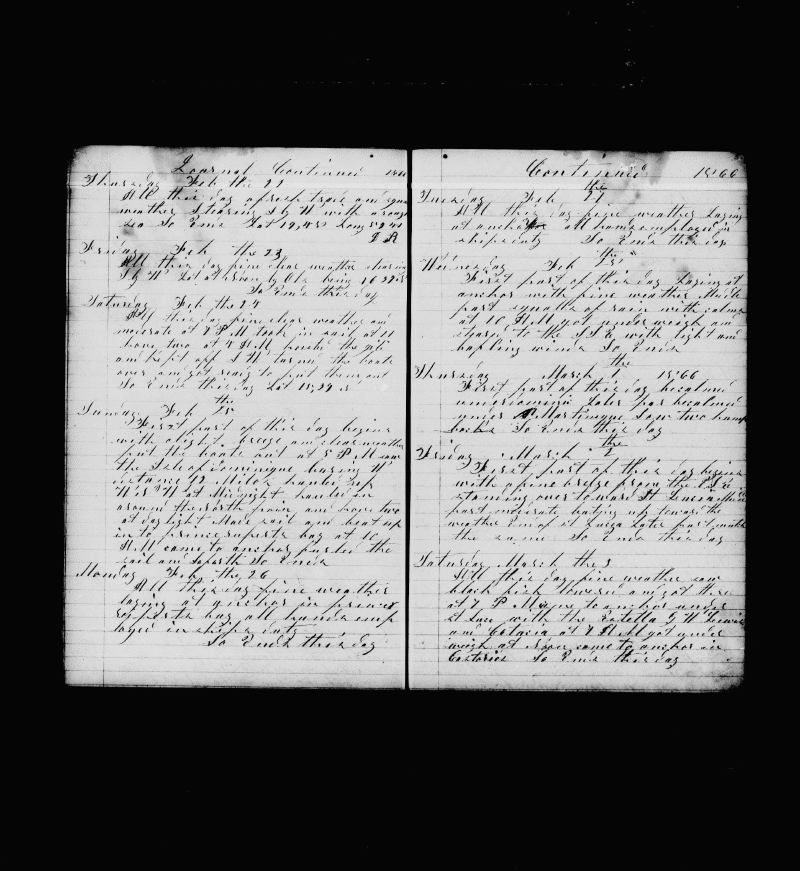 Journal Continued
Thursday Feb the 22
All this day fresh trade and
weather Stearing S by W with a rough
sea So Ends Lat 19,48 Long
Friday Feb the 23
All this day fine clear weather stearing
S by W Lat at Noon by Obs being 16
So Ends this day
Saturday Feb the 24
All this day fine clear weather and
moderate at 7 P M took in sail at 11
hove two at 7 A M the
and kept off S W turned the boats
over and got ready to put them out
So Ends this day Lat 15,29
Sunday Feb the 25
First part of this day begins
with a light breeze and clear weather
put the boats out at 5 P M saw
the Isle of Dominique baring W
distance 12 Miles hauled up
at Midnight hauled in
around the North and hove two
at daylight Made sail and beat up
in to prince ruperts bay at 10
A M came to anchor furled the
sail and So Ends
Monday Feb the 26
All this day fine weather
laying at anchor in prince
ruperts bay all hands emp
loyed in ships duty
So Ends this day
Continued 1866
Tuesday Feb the 27
All this day fine weather laying
at anchor all hands employed in
ship duty So Ends this day
Wensday Feb the 28
First part of this day laying at
anchor with fine weather Middle
part squalls of rain with calms
at 10 A M got under weigh and
steared to the with light and
baffling winds So Ends
Thursday March the 1 1866
First part of this day becalmed
under Later part becalmed
under Martinique Saw two hump
backs So Ends this day
Friday March the 2
First part of this day begins
with a fine breeze from the
standing over toward St Lucia
part moderate beating up toward the
weather end of St Lucia Later part much
the same So Ends this day
Saturday March the 3
All this day fine weather saw
black fish lowered and got three
at 7 P M came to anchor under
St Luce with the Estella G W Lewis
and at 7 A M got under
weigh at Noon came to anchor in
Castories So Ends this day